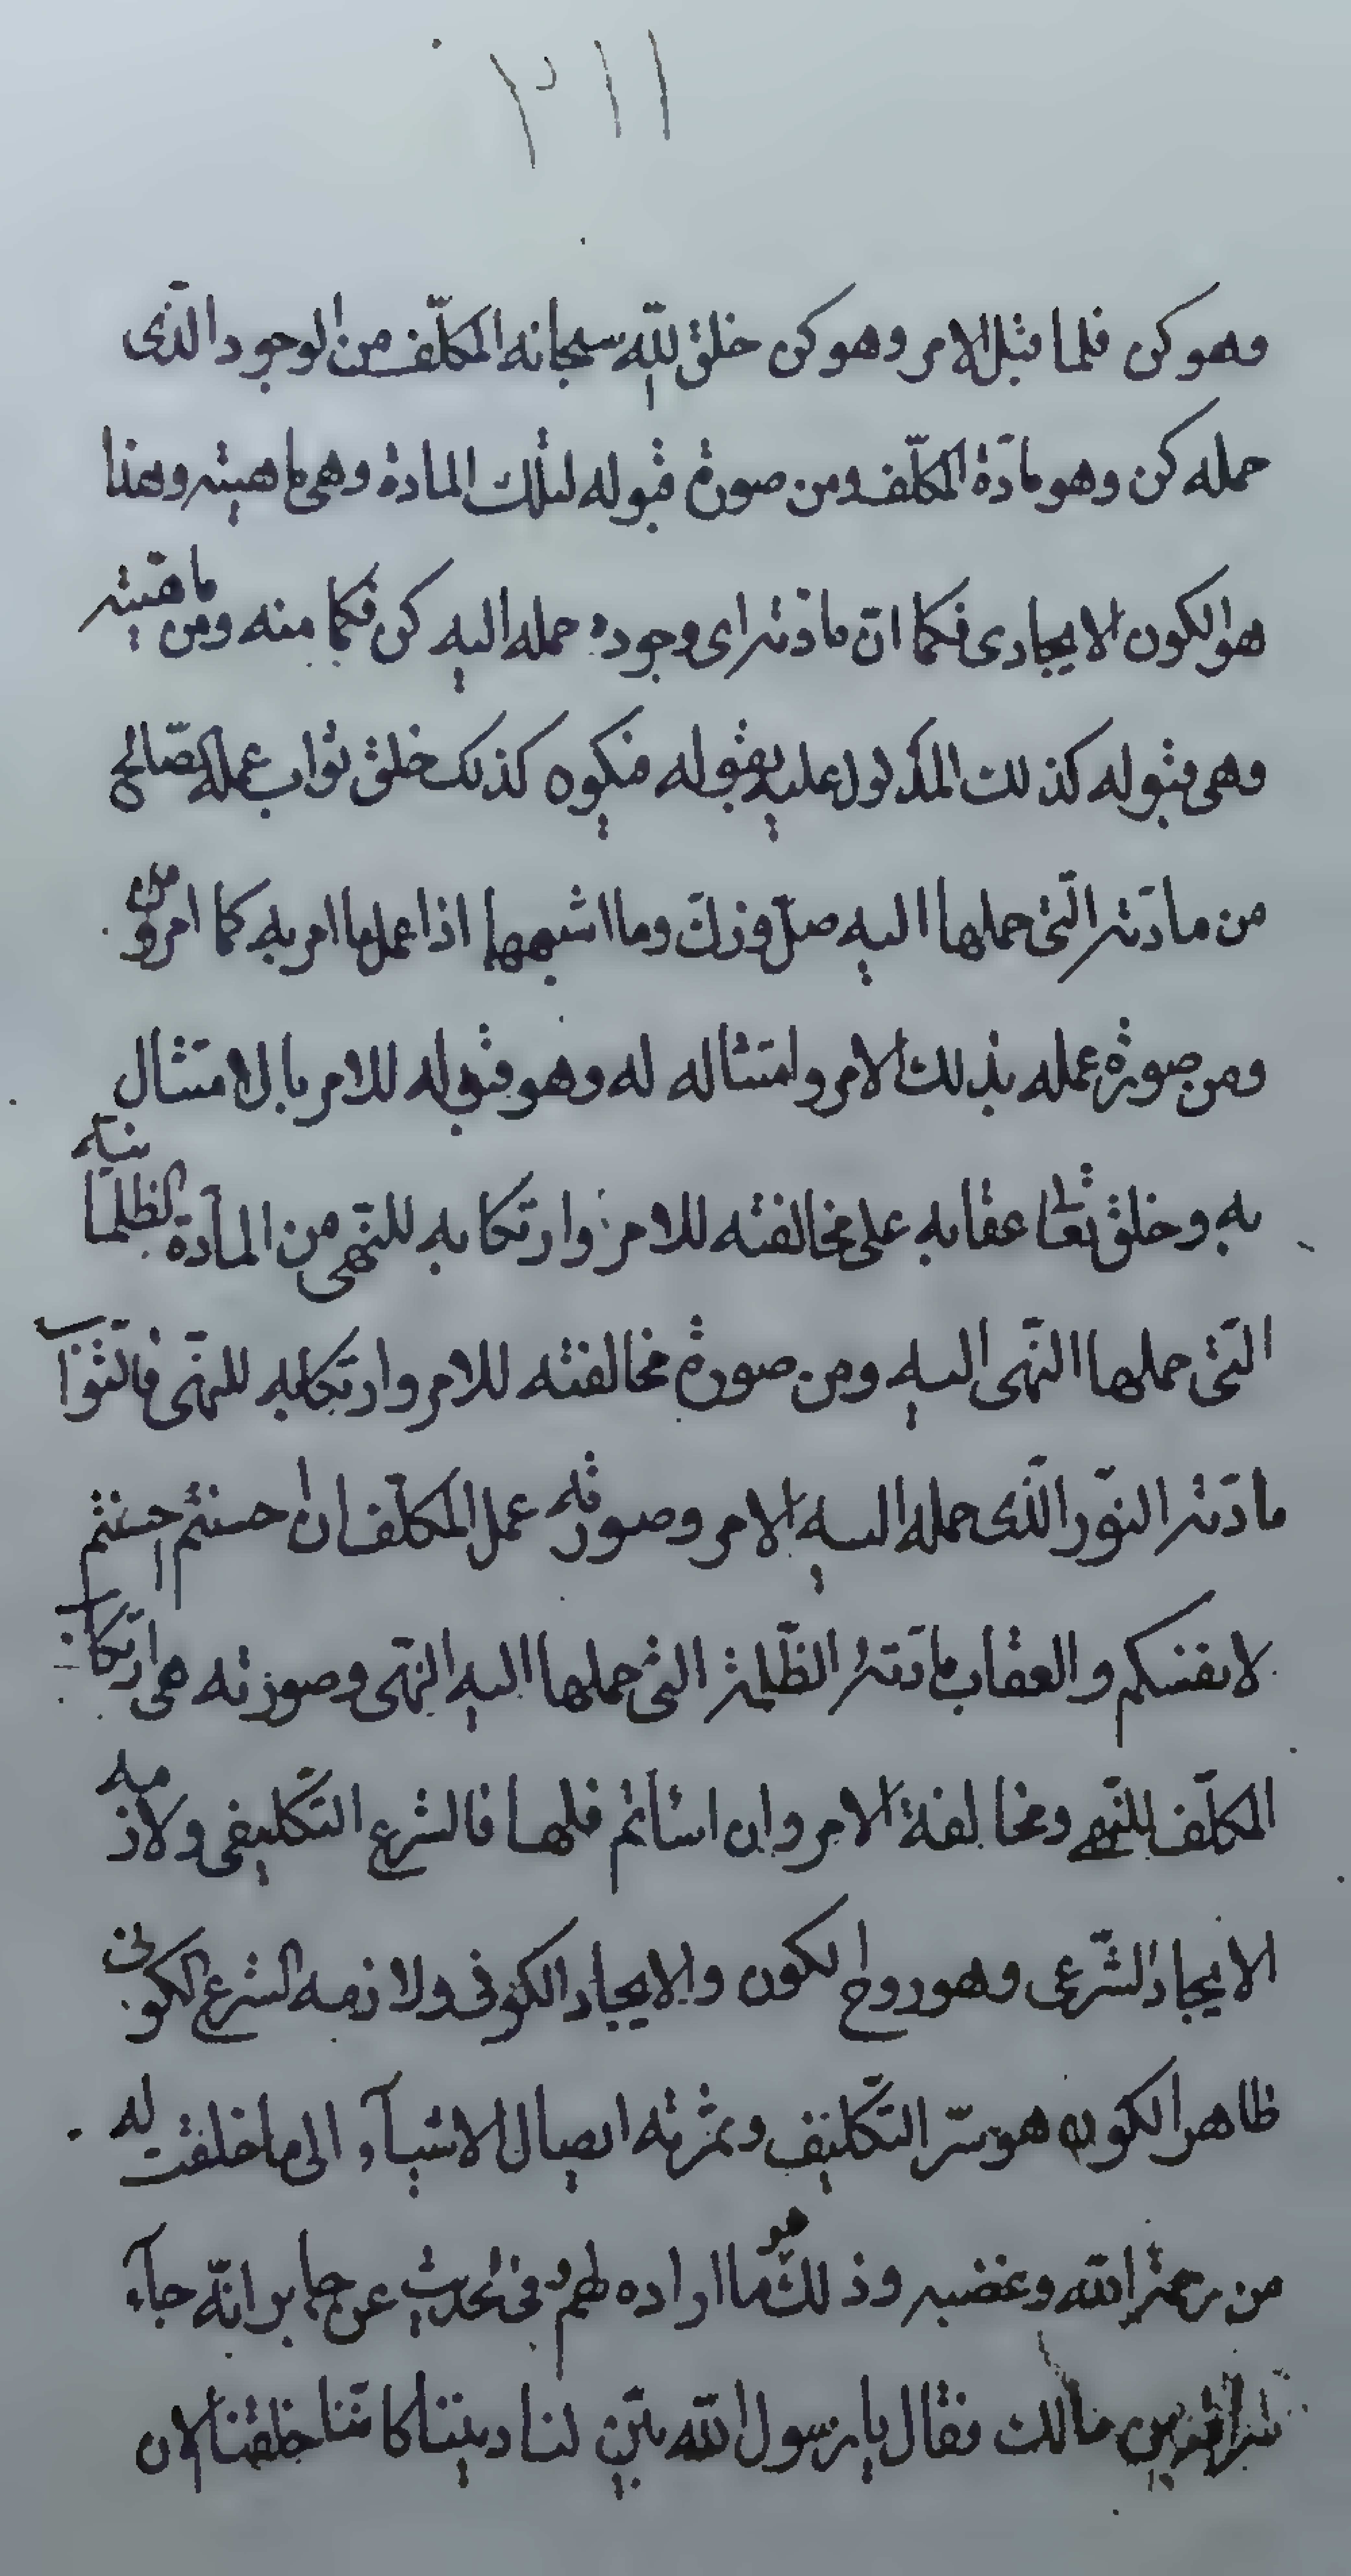 ٣١١
وهو كن فلما قبل الامر وهو كن خلق الله سبحانه المكلّف من الوجود الّذى
حمله كن وهو مادّة المكلّف ومن صورة قبوله لتلك المادة وهى ماهيته وهذا
هو الكون الايجادى فكما انّ مادّته اى وجوده حمله اليه كن فكما منه ومن ماهيته
وهى قبوله كذلك المدلول عليه بقوله فيكون كذلك خلق ثواب عمله الصّالح
من مادّته الّتى حملها اليه صلّ وزكّ وما اشبهها اذا عمل ما امر به كما امر
ومن صورة عمله بذلك الامر وامتثاله له وهو قبوله للامر بالامتثال
به وخلق تعالى عقابه على مخالفته للامر وارتكابه للنّهى من المادّة الظلمانيّة
الّتى حملها النّهى اليه ومن صورة مخالفته للامر وارتكابه للنّهى فالثّواب
مادّته النّور الّذى حمله اليه الامر وصورته عمل المكلّف ان احسنتم احسنتم
لانفسكم والعقاب مادّته الظّلمة التى حملها اليه النّهى وصورته هى ارتكاب
المكلّف للنّهى ومخالفة الامر وان اسأتم فلها فالشرع التكليفى ولازمه
الايجاد الشّرعى وهو روح الكون والايجاد الكونى ولازمه الشرع الكونى
ظاهر الكون هو سرّ التكليف وثمرته ايصال الاشيآء الى ما خلقت له
من رحمة الله وغضبه وذلك هو ما اراده لهم وفى الحديث عن جابر انّه جآء
سراقة بن مالك فقال يا رسول الله بيّن لنا ديننا كاننا خلقنا الان